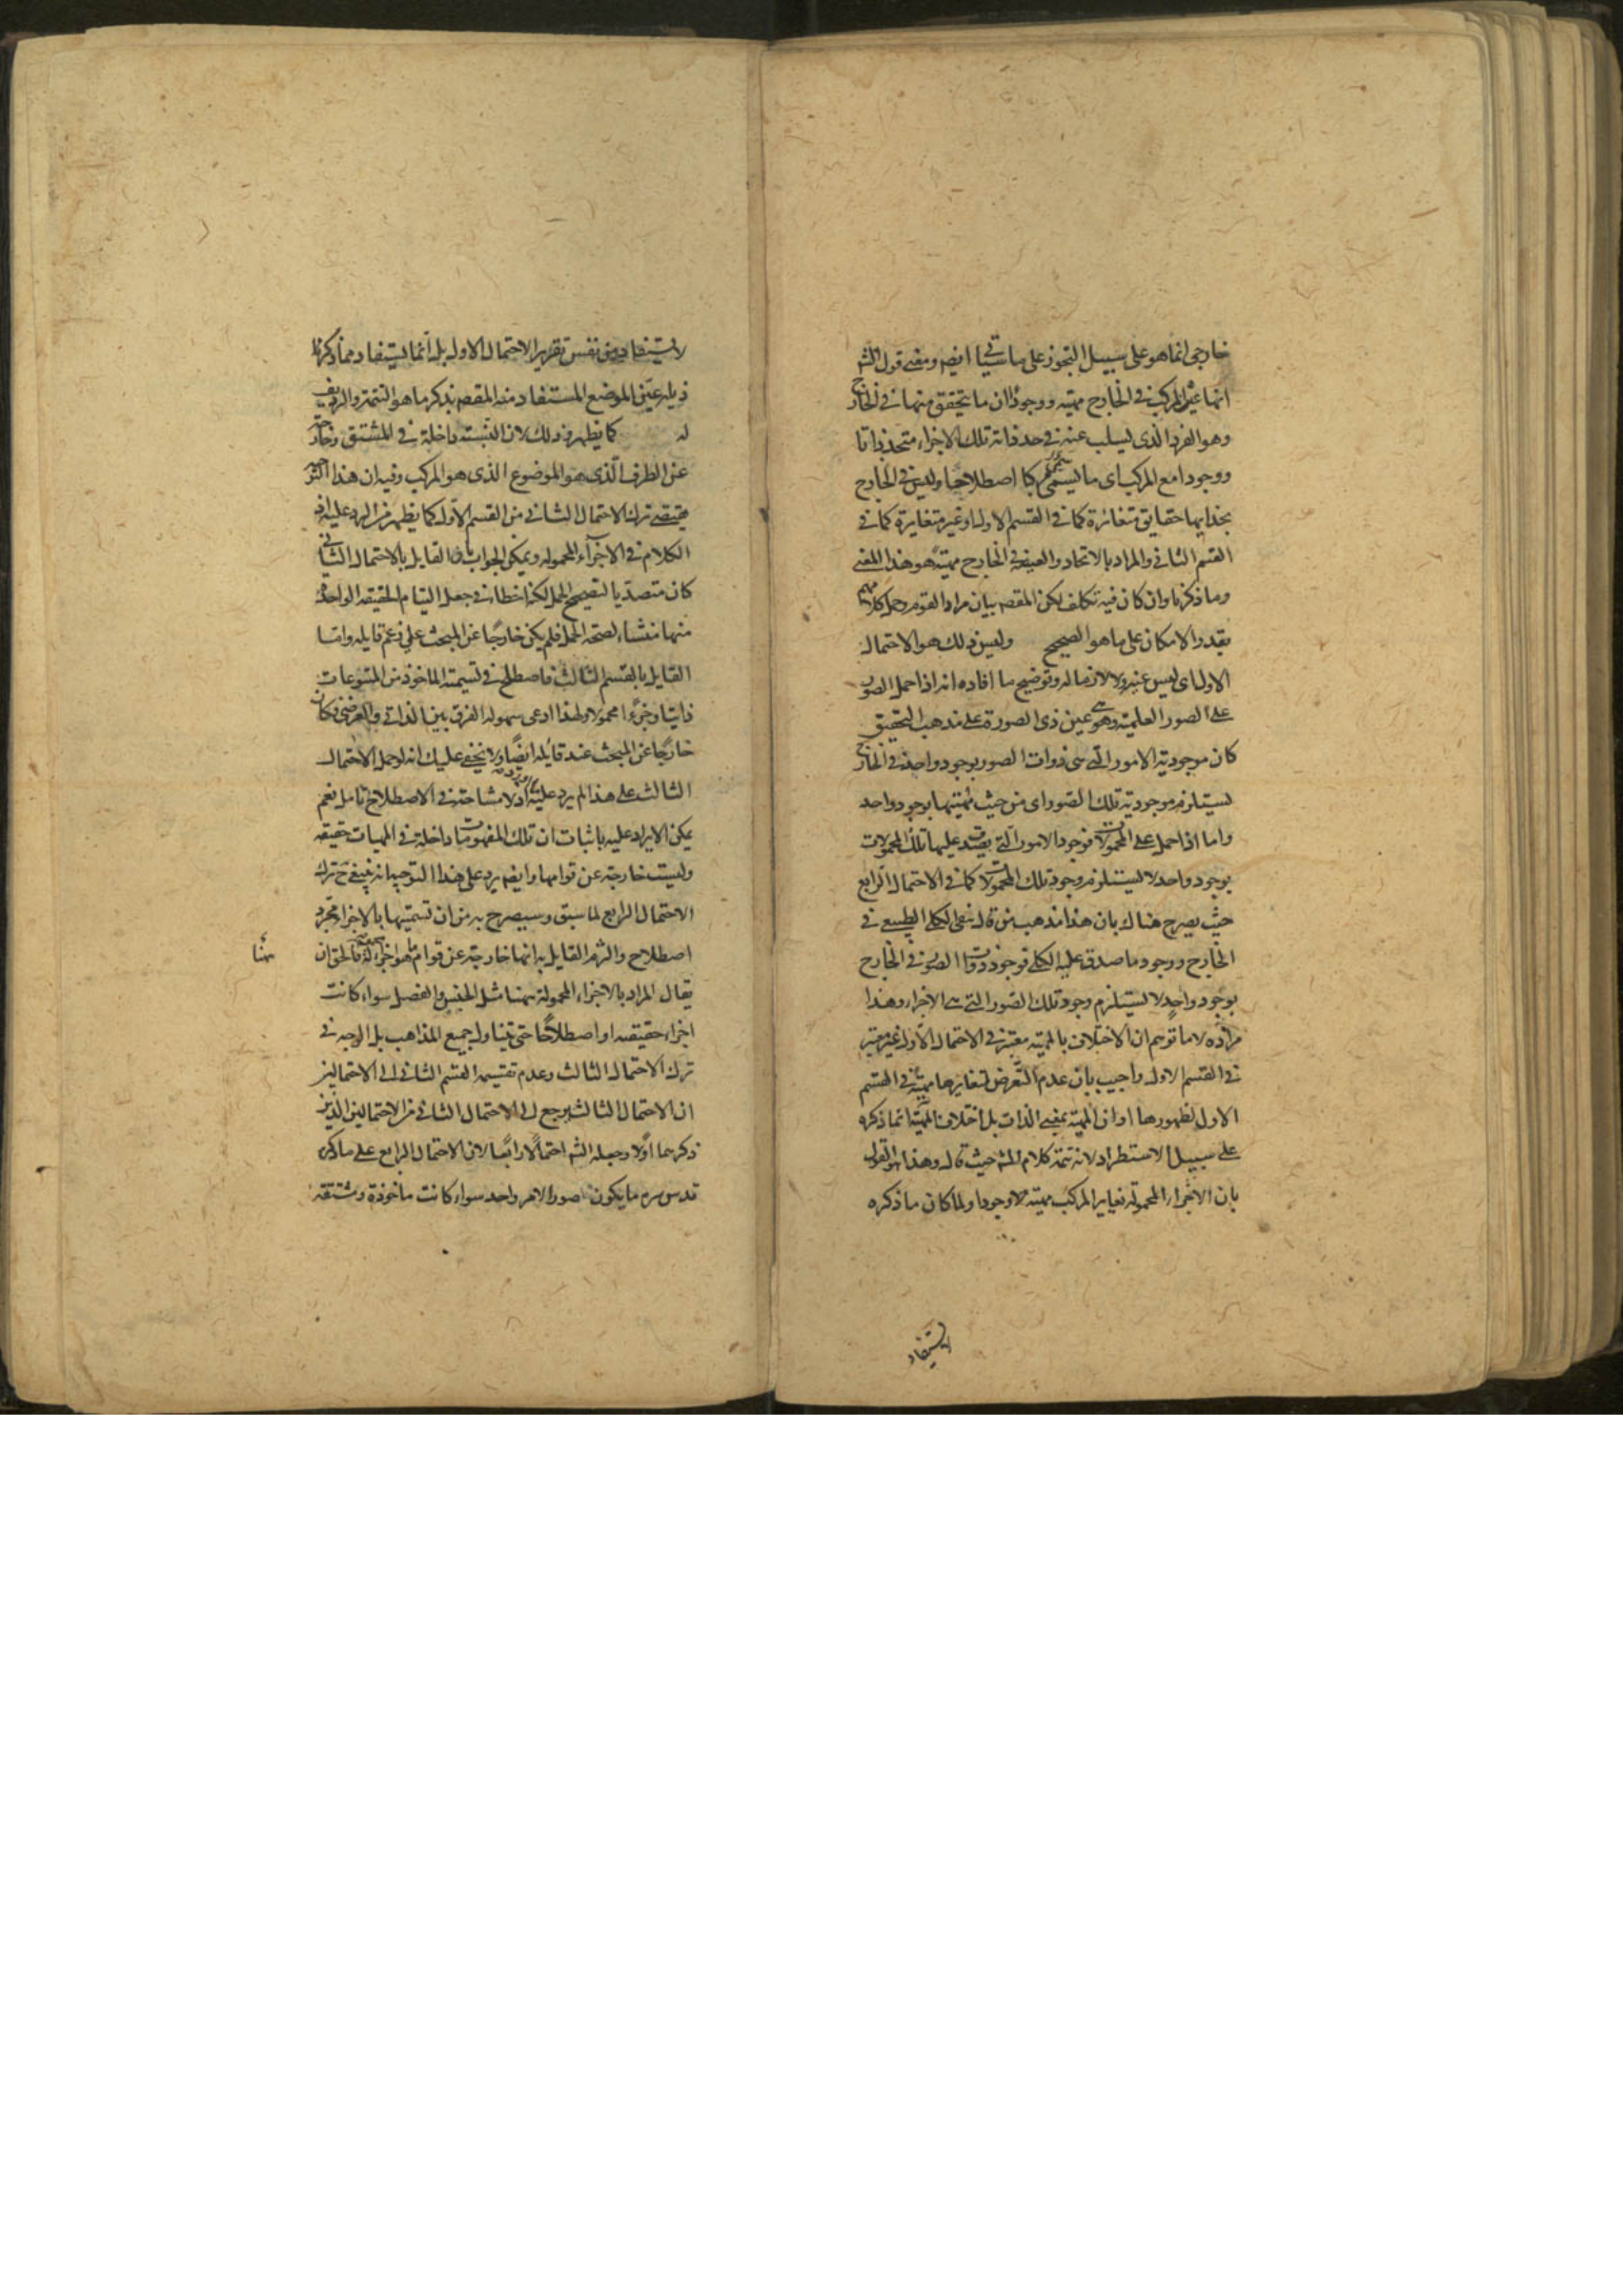 خارجى انما هو على سبيل التجوز على ما سيأتى ايضا ومعنى قول الشه
انها عين المركب فى الخارج مهية ووجودا ان ما يتحقق منها فى الخارج
وهو الفرد الذى يسلب عنه فى حد ذاته تلك الاجزاء متحد ذاتا
ووجودا مع المركب اى ما يسمى مركبا اصطلاحا وليس فى الخارج
بحذائها حقايق متغائرة كما فى القسم الاول او غير متغايرة كما فى
القسم الثانى والمراد بالاتحاد والعينية فى الخارج مهية هو هذا المعنى
وما ذكرنا وان كان فيه تكلف لكن المقصد بيان مراد القوم وحمل كلامهم
بقدر الامكان على ما هو الصحيح وليس ذلك هو الاحتمال
الاول اى ليس عينه ولا لازما له وتوضيح ما افاده انه اذا حمل الصور
على الصور العلمية وهى عين ذى الصورة على مذهب التحقيق
كان موجودية الامور التى هى ذوات الصور بوجود واحد فى الخارج
يستلزم موجودية تلك الصور اى من حيث مهيتها بوجود واحد
واما اذا حمل على المحمولات فوجود الامور التى يصدق عليها تلك المحمولات
بوجود واحد لا يستلزم وجود تلك المحمولات كما فى الاحتمال الرابع
حيث يصرح هناك بان هذا مذهب من قال بنفى الكلى الطبيعى فى
الخارج ووجود ما صدق عليه الكلى فوجود ذوات الصور فى الخارج
بوجود واحد لا يستلزم وجود تلك الصور التى هى الاجزاء وهذا
مراده لا ما توهم ان الاختلاف بالمهية معتبر فى الاحتمال الاول غير معتبر
فى القسم الاول واجيب بان عدم التعرض لتغايرها مهية فى القسم
الاول لظهورها او ان المهية بمعنى الذات بل اختلاف المهية انما ذكره
على سبيل الاستطراد لانه تتمة كلام الشه حيث قال وهذا هو القول
بان الاجزاء المحمولة تغاير المركب مهية لا وجودا ولما كان ما ذكره
لا يستفاد
لا يستفاد من نفس تقرير الاحتمال الاول بل انما يستفاد مما ذكر فى
ذيله عين الموضع المستفاد منه المقصد بذكر ما هو التتمة والرديف
له كما يظهر وذلك لان النسبة داخلة فى المشتق وخارجة
عن الطرف الذى هو الموضوع الذى هو المركب وفيه ان هذا
يقتضى ترك الاحتمال الثانى من القسم الاول كما يظهر من الرد عليه اذ
الكلام فى الاجزاء المحمولة ويمكن الجواب بان القايل بالاحتمال الثانى
كان متصديا لتصحيح الحمل لكنه اخطاء فى جعل التيام الحقيقة الواحدة
منها منشاء لصحة الحمل فلم يكن خارجا عن المبحث على زعم قايله واما
القايل بالقسم الثالث فاصطلح فى تسمية الماخوذ من المتبوعات
ذاتيا وجزءا محمولا ولهذا ادعى سهولة الفرق بين الذاتى والعرضى فكان
خارجا عن المبحث عند قايله ايضا ولا يخفى عليك انه لو حمل الاحتمال
الثالث على هذا لم يرد عليه اذ لا مشاحة فى الاصطلاح تامل نعم
يمكن الايراد عليه باثبات ان تلك المفهومات داخلة فى المهيات حقيقة
وليست خارجة عن قوامها وايضا يرد على هذا التوجيه انه ينبغى ح ترك
الاحتمال الرابع لما سبق وسيصرح به من ان تسميتها بالاجزاء مجرد
اصطلاح والتزم القايل به انها خارجة عن قوام ما هو اجزاء له فالحق ان
يقال المراد بالاجزاء المحمولة ههنا مثل الجنس والفصل سواء كانت
ههنا
اجزاء حقيقة او اصطلاحا حتى يتناول جميع المذاهب بل الوجه فى
ترك الاحتمال الثالث وعدم تقسيم القسم الثانى الى الاحتمالين
ان الاحتمال الثالث يرجع الى الاحتمال الثانى من الاحتمالين الذين
ذكرهما اولا وجعله الشه احتمالا رابعا لان الاحتمال الرابع على ما ذكره
قدس سره ما يكون صورا لامر واحد سواء كانت ماخوذة ومشتقة